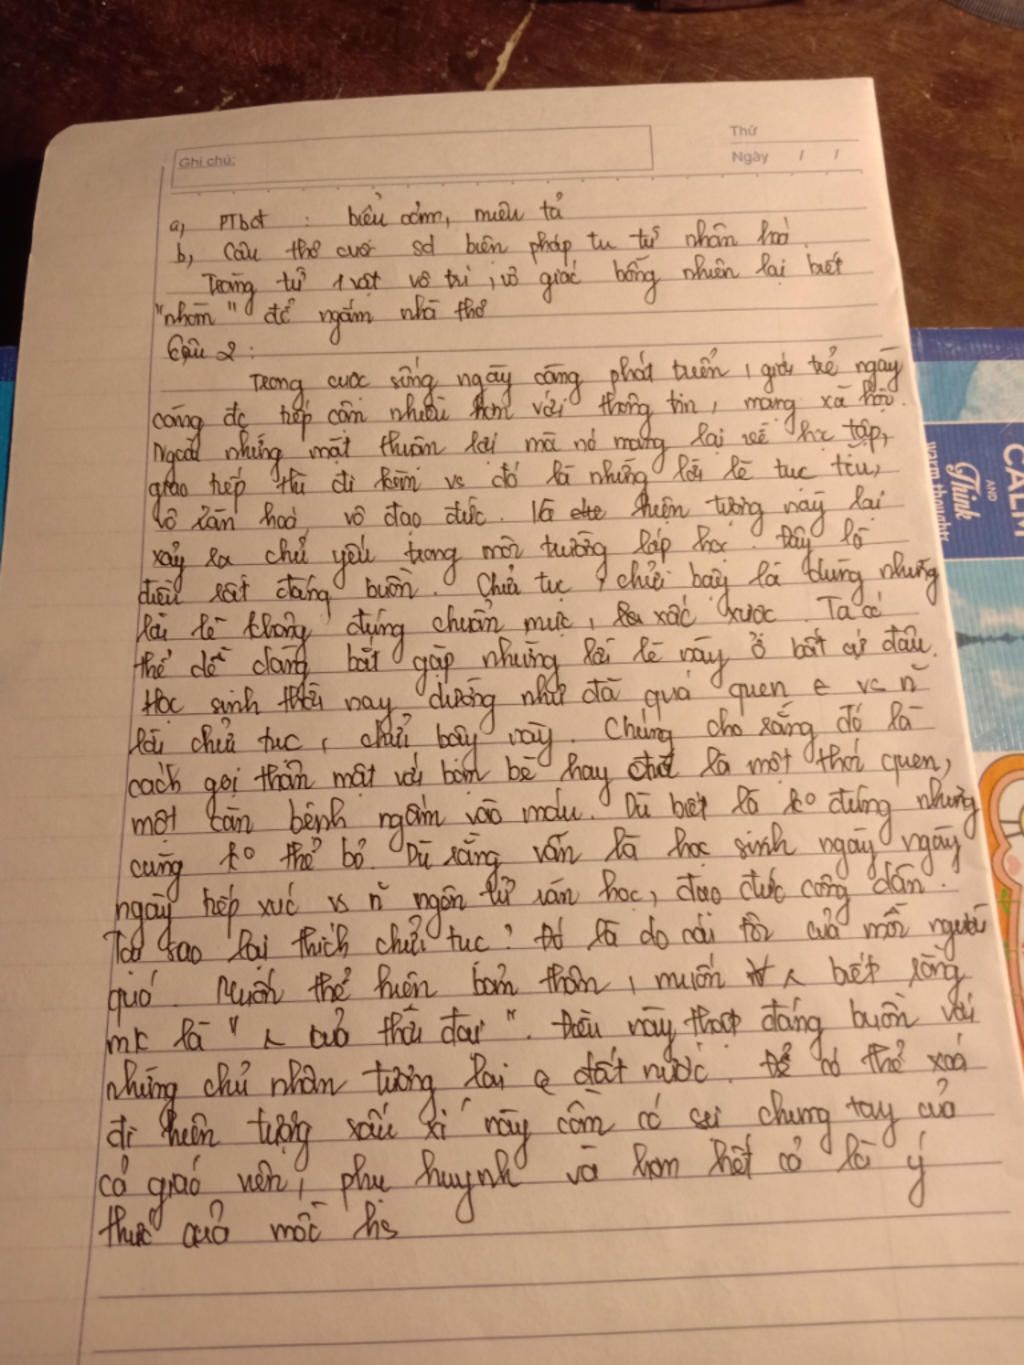 Ghi chú:
Thứ
Ngày / /
a, PTbđ : biểu cảm, miêu tả
b, Câu thơ cuối sd biện pháp tu từ nhân hoá.
Trăng từ 1 vật vô tri, vô giác bỗng nhiên lại biết
"nhòm" để ngắm nhà thơ
Câu 2:
Trong cuộc sống ngày càng phát triển, giới trẻ ngày
càng đc tiếp cận nhiều hơn với thông tin, mạng xã hội.
Ngoài những mặt thuận lợi mà nó mang lại về học tập,
giao tiếp thì đi kèm vs đó là những lời lẽ tục tĩu,
vô văn hoá, vô đạo đức. Và hiện tượng này lại
xảy ra chủ yếu trong môi trường lớp học. Đây là
điều rất đáng buồn. Chửi tục, chửi bậy là dùng những
lời lẽ không đúng chuẩn mực, xấc xược. Ta có
thể dễ dàng bắt gặp những lời lẽ này ở bất cứ đâu.
Học sinh thời nay dường như đã quá quen vs n~
lời chửi tục, chửi bậy này. Chúng cho rằng đó là
cách gọi thân mật với bạn bè hay là một thói quen,
một căn bệnh ngấm vào máu. Dù biết là k° đúng nhưng
cũng k° thể bỏ. Dù rằng vẫn là học sinh ngày ngày
ngày tiếp xúc vs n~ ngôn từ văn học, đạo đức công dân.
Tại sao lại thích chửi tục? Đó là do cái tôi của mỗi người
quá. Muốn thể hiện bản thân, muốn ∀ biết rằng
mk là " của thời đại". Điều này thật đáng buồn với
những chủ nhân tương lai đất nước. Để có thể xoá
đi hiện tượng xấu xí này cần có sự chung tay của
cả giáo viên, phụ huynh và hơn hết cả là ý
thức của mỗi hs
CALM
AND
Think
warm thoughts